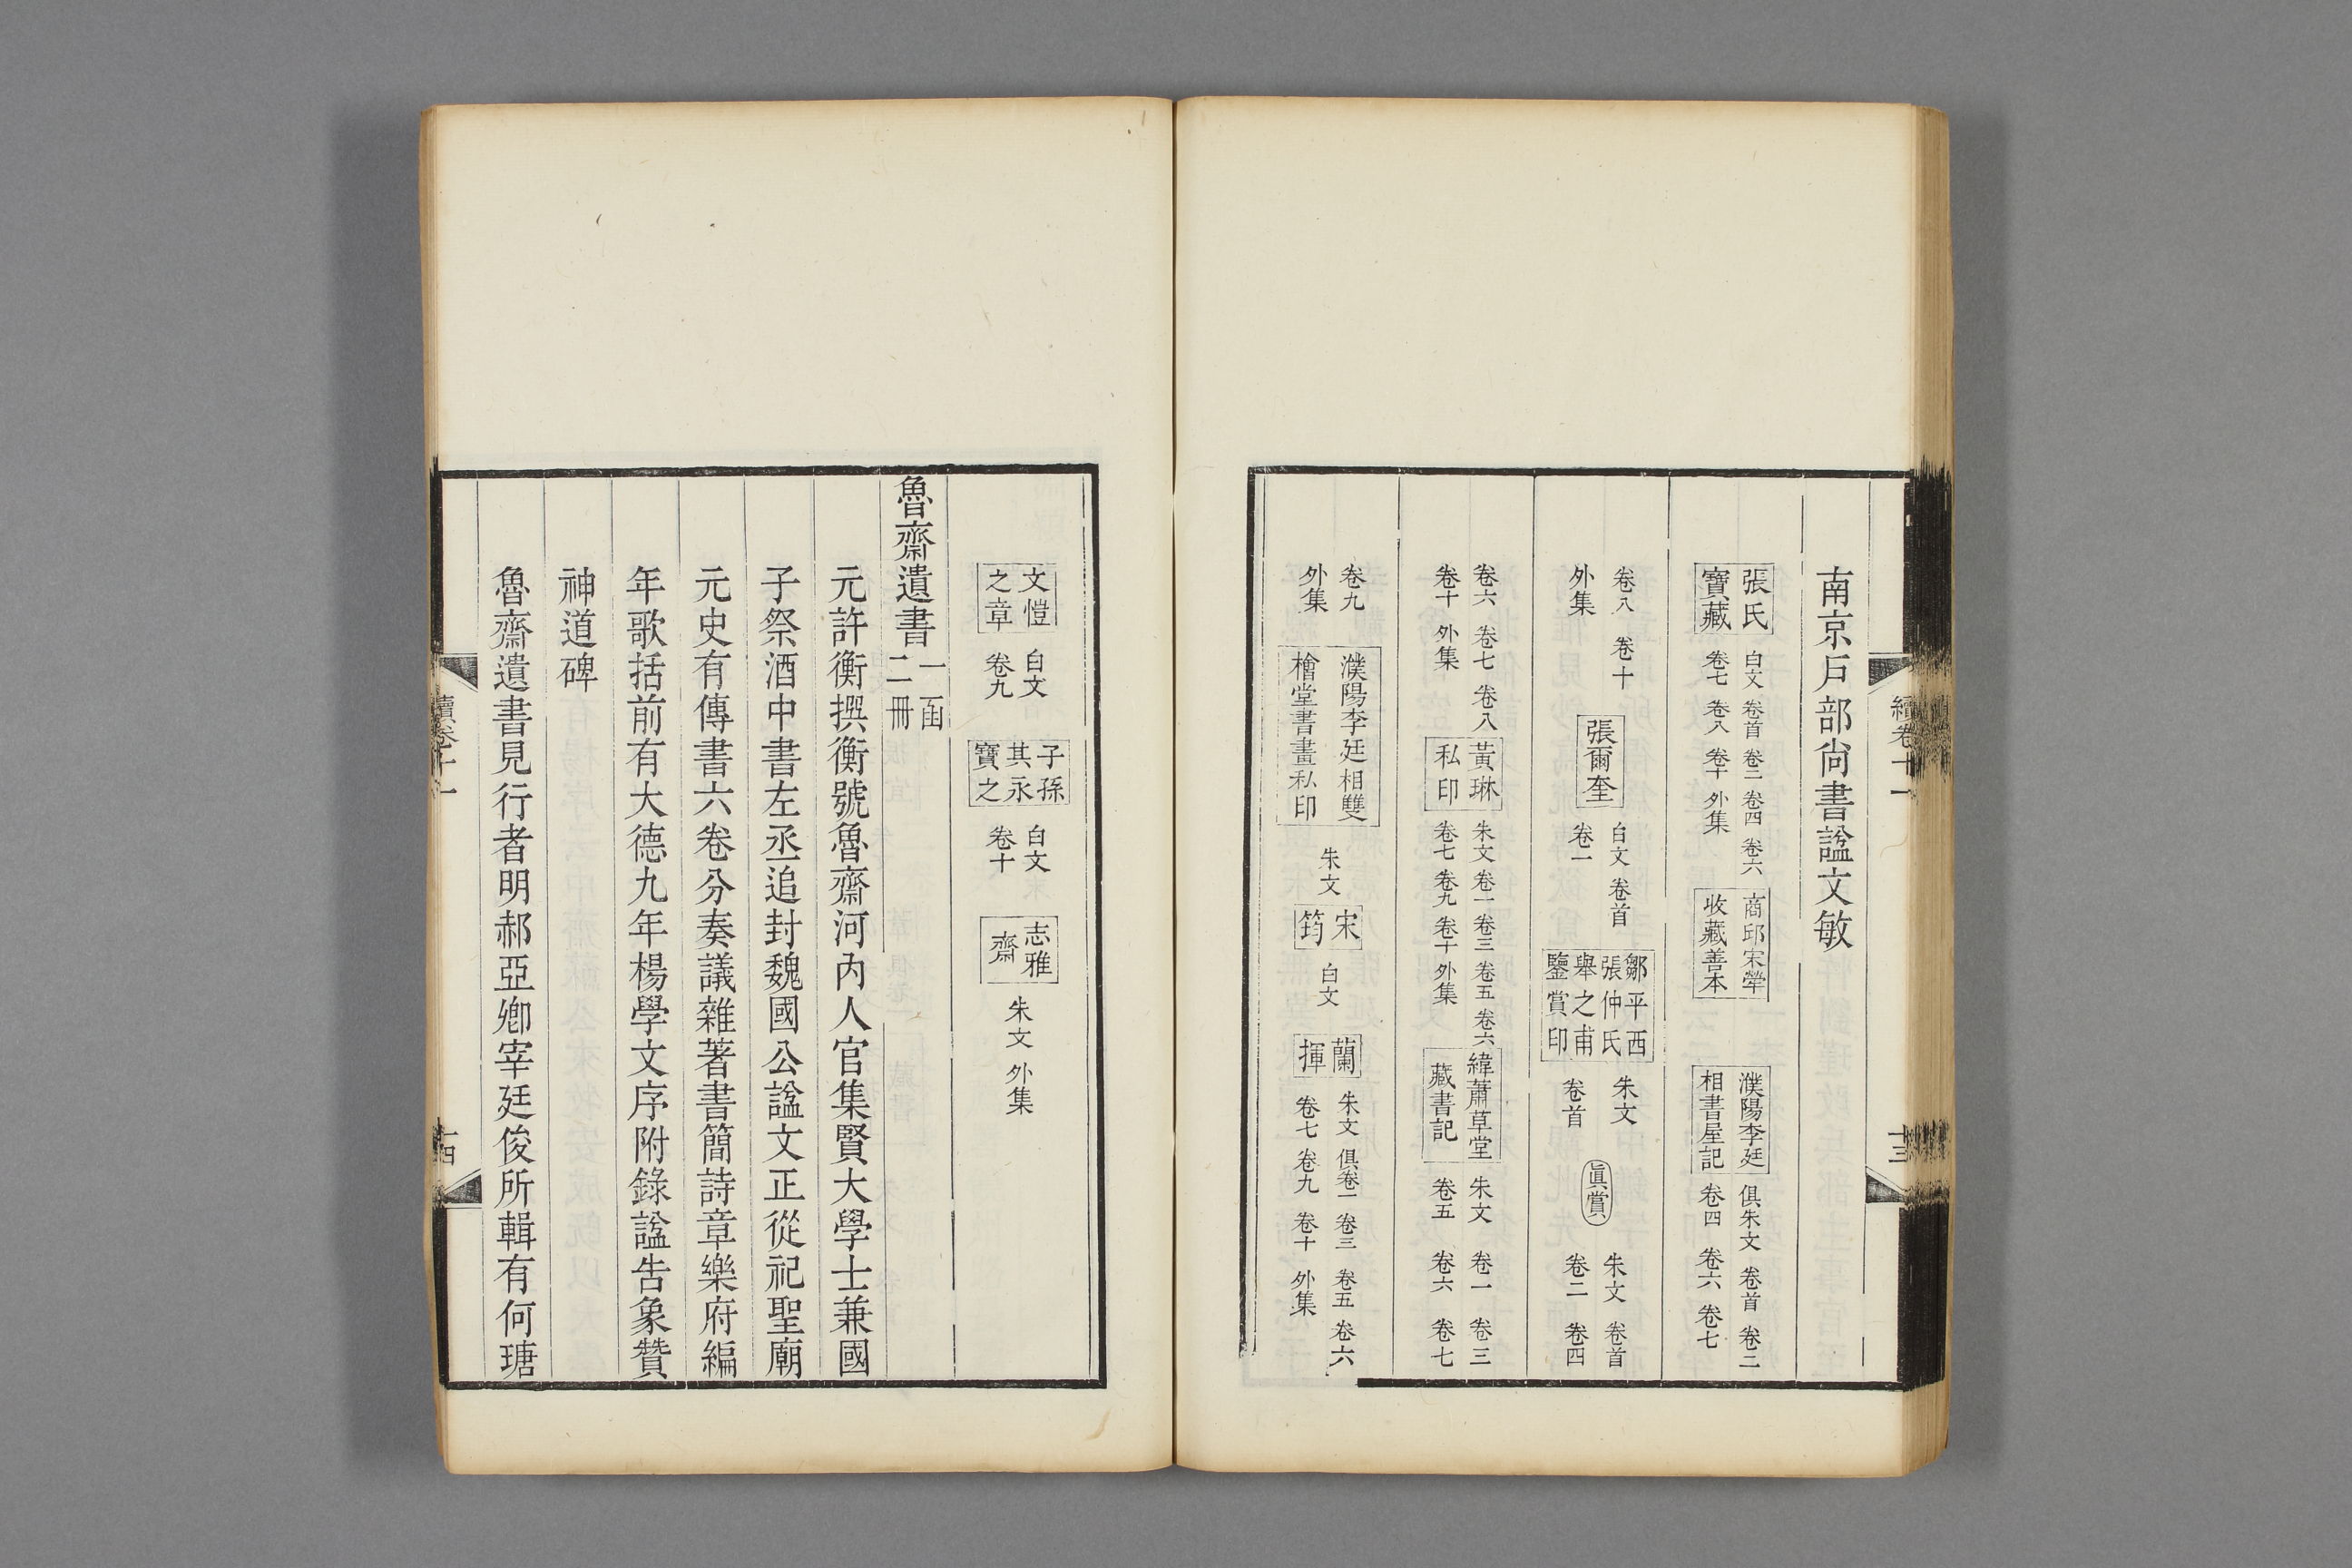 南京戶部尚書諡文敏
張氏
寶藏
白文 卷首 卷二 卷四 卷六
卷七 卷八 卷十 外集
商邱宋犖
收藏善本
濮陽李廷
相書屋記
俱朱文 卷首 卷二
卷四 卷六 卷七
卷八 卷十
外集
張爾奎
白文 卷首
卷一
鄒平西
張仲氏
舉之甫
鑒賞印
朱文
卷首
眞賞
朱文 卷首
卷二 卷四
卷六 卷七 卷八
卷十 外集
黃琳
私印
朱文 卷一 卷三 卷五 卷六
卷七 卷九 卷十 外集
緯蕭草堂
藏書記
朱文 卷一 卷三
卷五 卷六 卷七
卷九
外集
濮陽李廷相雙
檜堂書畫私印
朱文
宋
筠
白文
蘭
揮
朱文 俱卷一 卷三 卷五 卷六
卷七 卷九 卷十 外集
續卷十一
十三
文愷
之章
白文
卷九
子孫
其永
寶之
白文
卷十
志雅
齋
朱文 外集
魯齋遺書
一函
二冊
元許衡撰衡號魯齋河內人官集賢大學士兼國
子祭酒中書左丞追封魏國公諡文正從祀聖廟
元史有傳書六卷分奏議雜著書簡詩章樂府編
年歌括前有大德九年楊學文序附錄諡告象贊
神道碑
魯齋遺書見行者明郝亞卿宰廷俊所輯有何瑭
續卷十一
十四